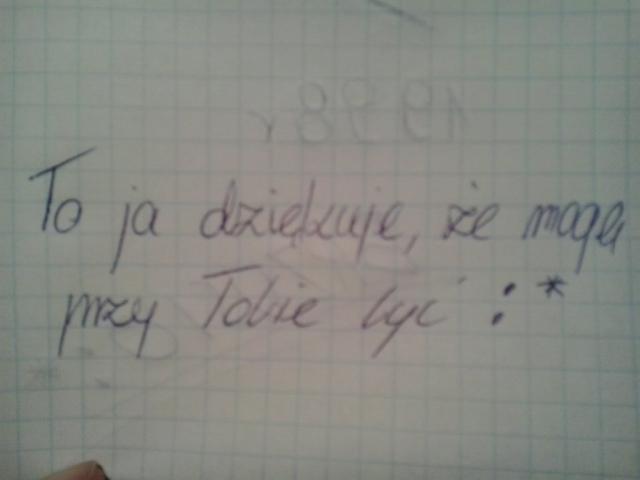 To ja dziękuję, że mogę
przy Tobie być :*
1998 r